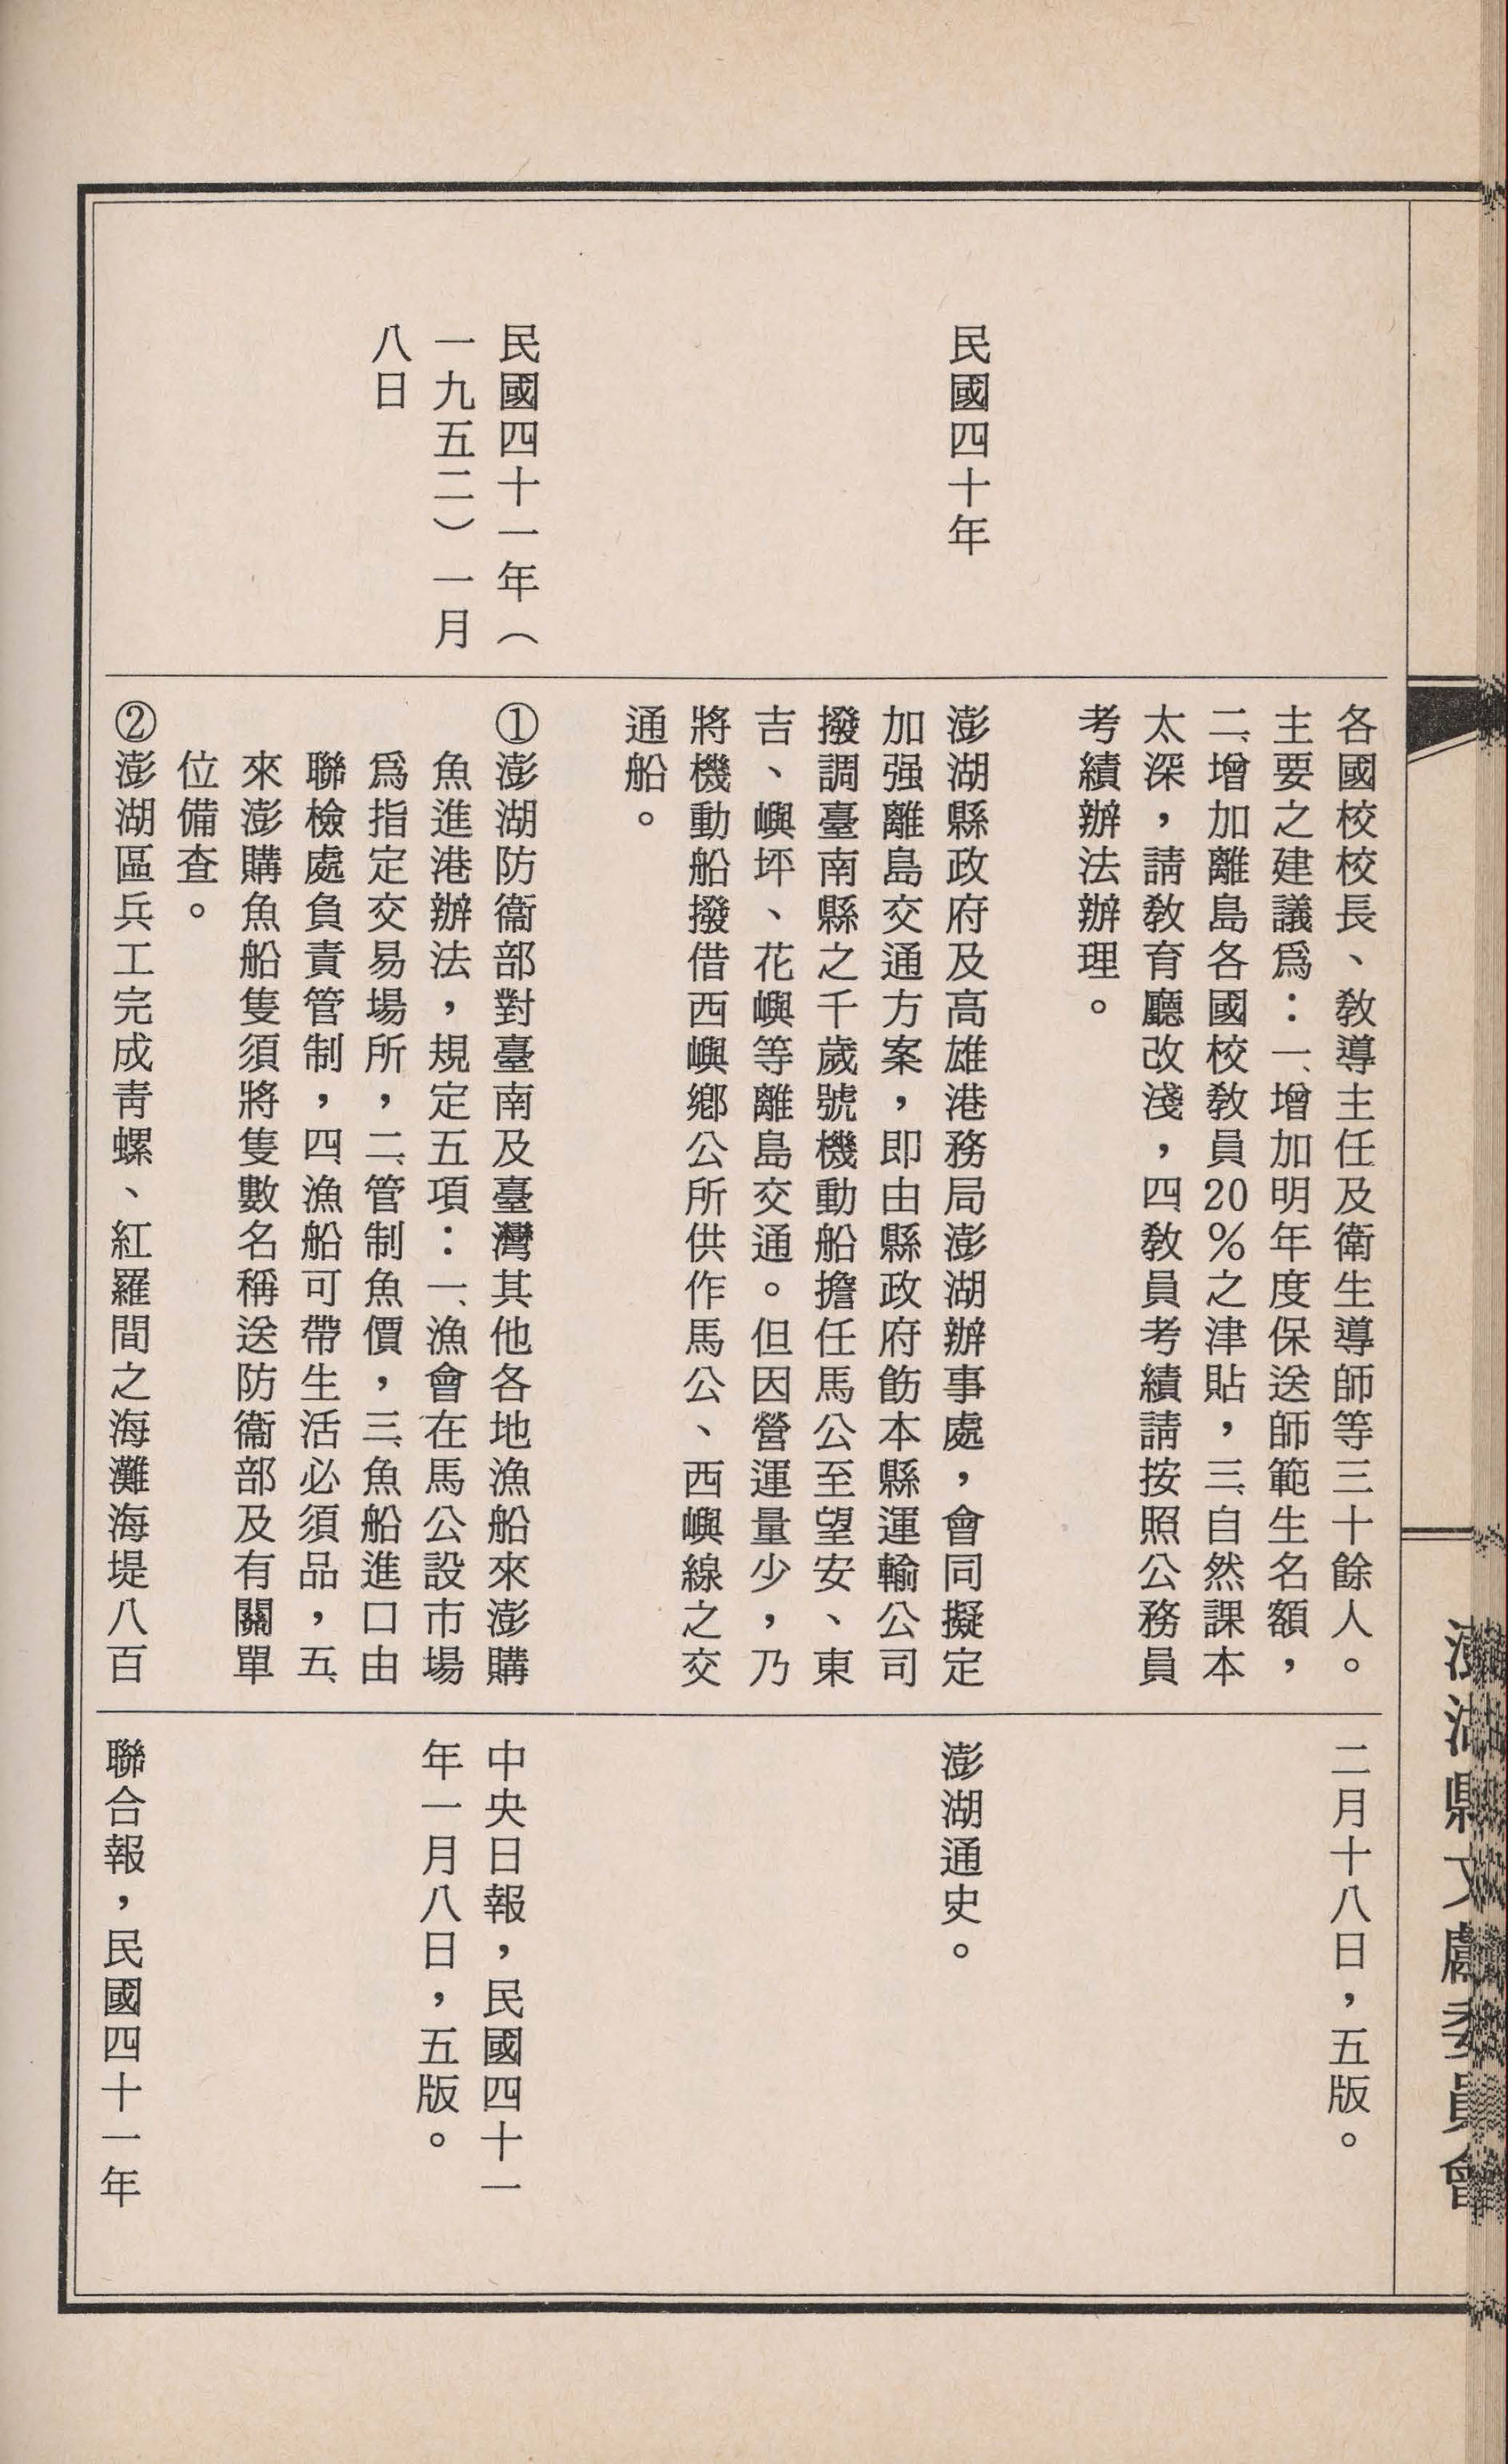 澎湖縣文獻委員會
各國校校長、敎導主任及衛生導師等三十餘人。
主要之建議爲：一、增加明年度保送師範生名額，
二、增加離島各國校敎員20％之津貼，三、自然課本
太深，請敎育廳改淺，四敎員考績請按照公務員
考績辦法辦理。
二月十八日，五版。
民國四十年
澎湖縣政府及高雄港務局澎湖辦事處，會同擬定
加强離島交通方案，即由縣政府飭本縣運輸公司
撥調臺南縣之千歲號機動船擔任馬公至望安、東
吉、嶼坪、花嶼等離島交通。但因營運量少，乃
將機動船撥借西嶼鄉公所供作馬公、西嶼線之交
通船。
澎湖通史。
民國四十一年（
一九五二）一月
八日
①澎湖防衞部對臺南及臺灣其他各地漁船來澎購
魚進港辦法，規定五項：一、漁會在馬公設市場
爲指定交易場所，二、管制魚價，三、魚船進口由
聯檢處負責管制，四、漁船可帶生活必須品，五、
來澎購魚船隻須將隻數名稱送防衞部及有關單
位備查。
中央日報，民國四十一
年一月八日，五版。
②澎湖區兵工完成青螺、紅羅間之海灘海堤八百
聯合報，民國四十一年